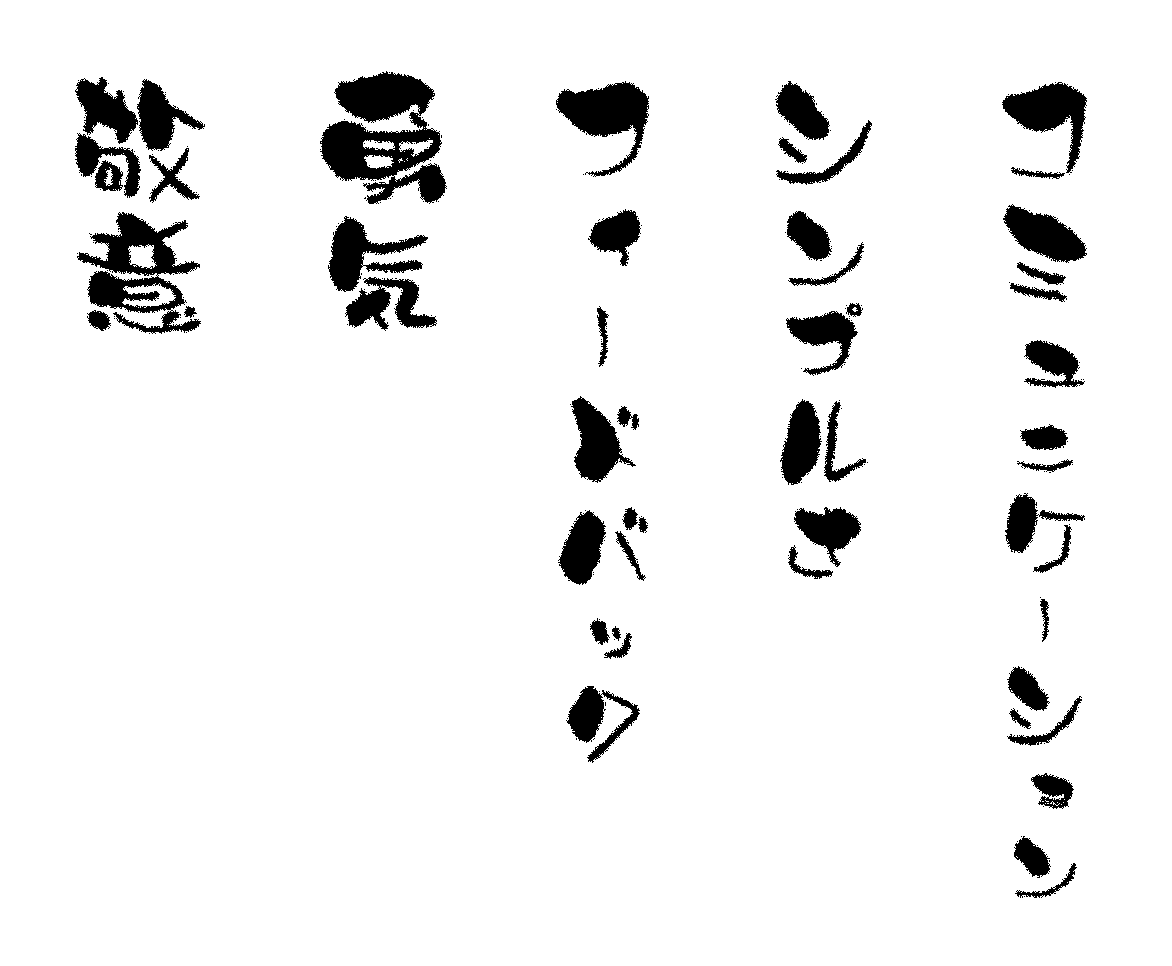 コミュニケーション
シンプルさ
フィードバック
勇気
敬意